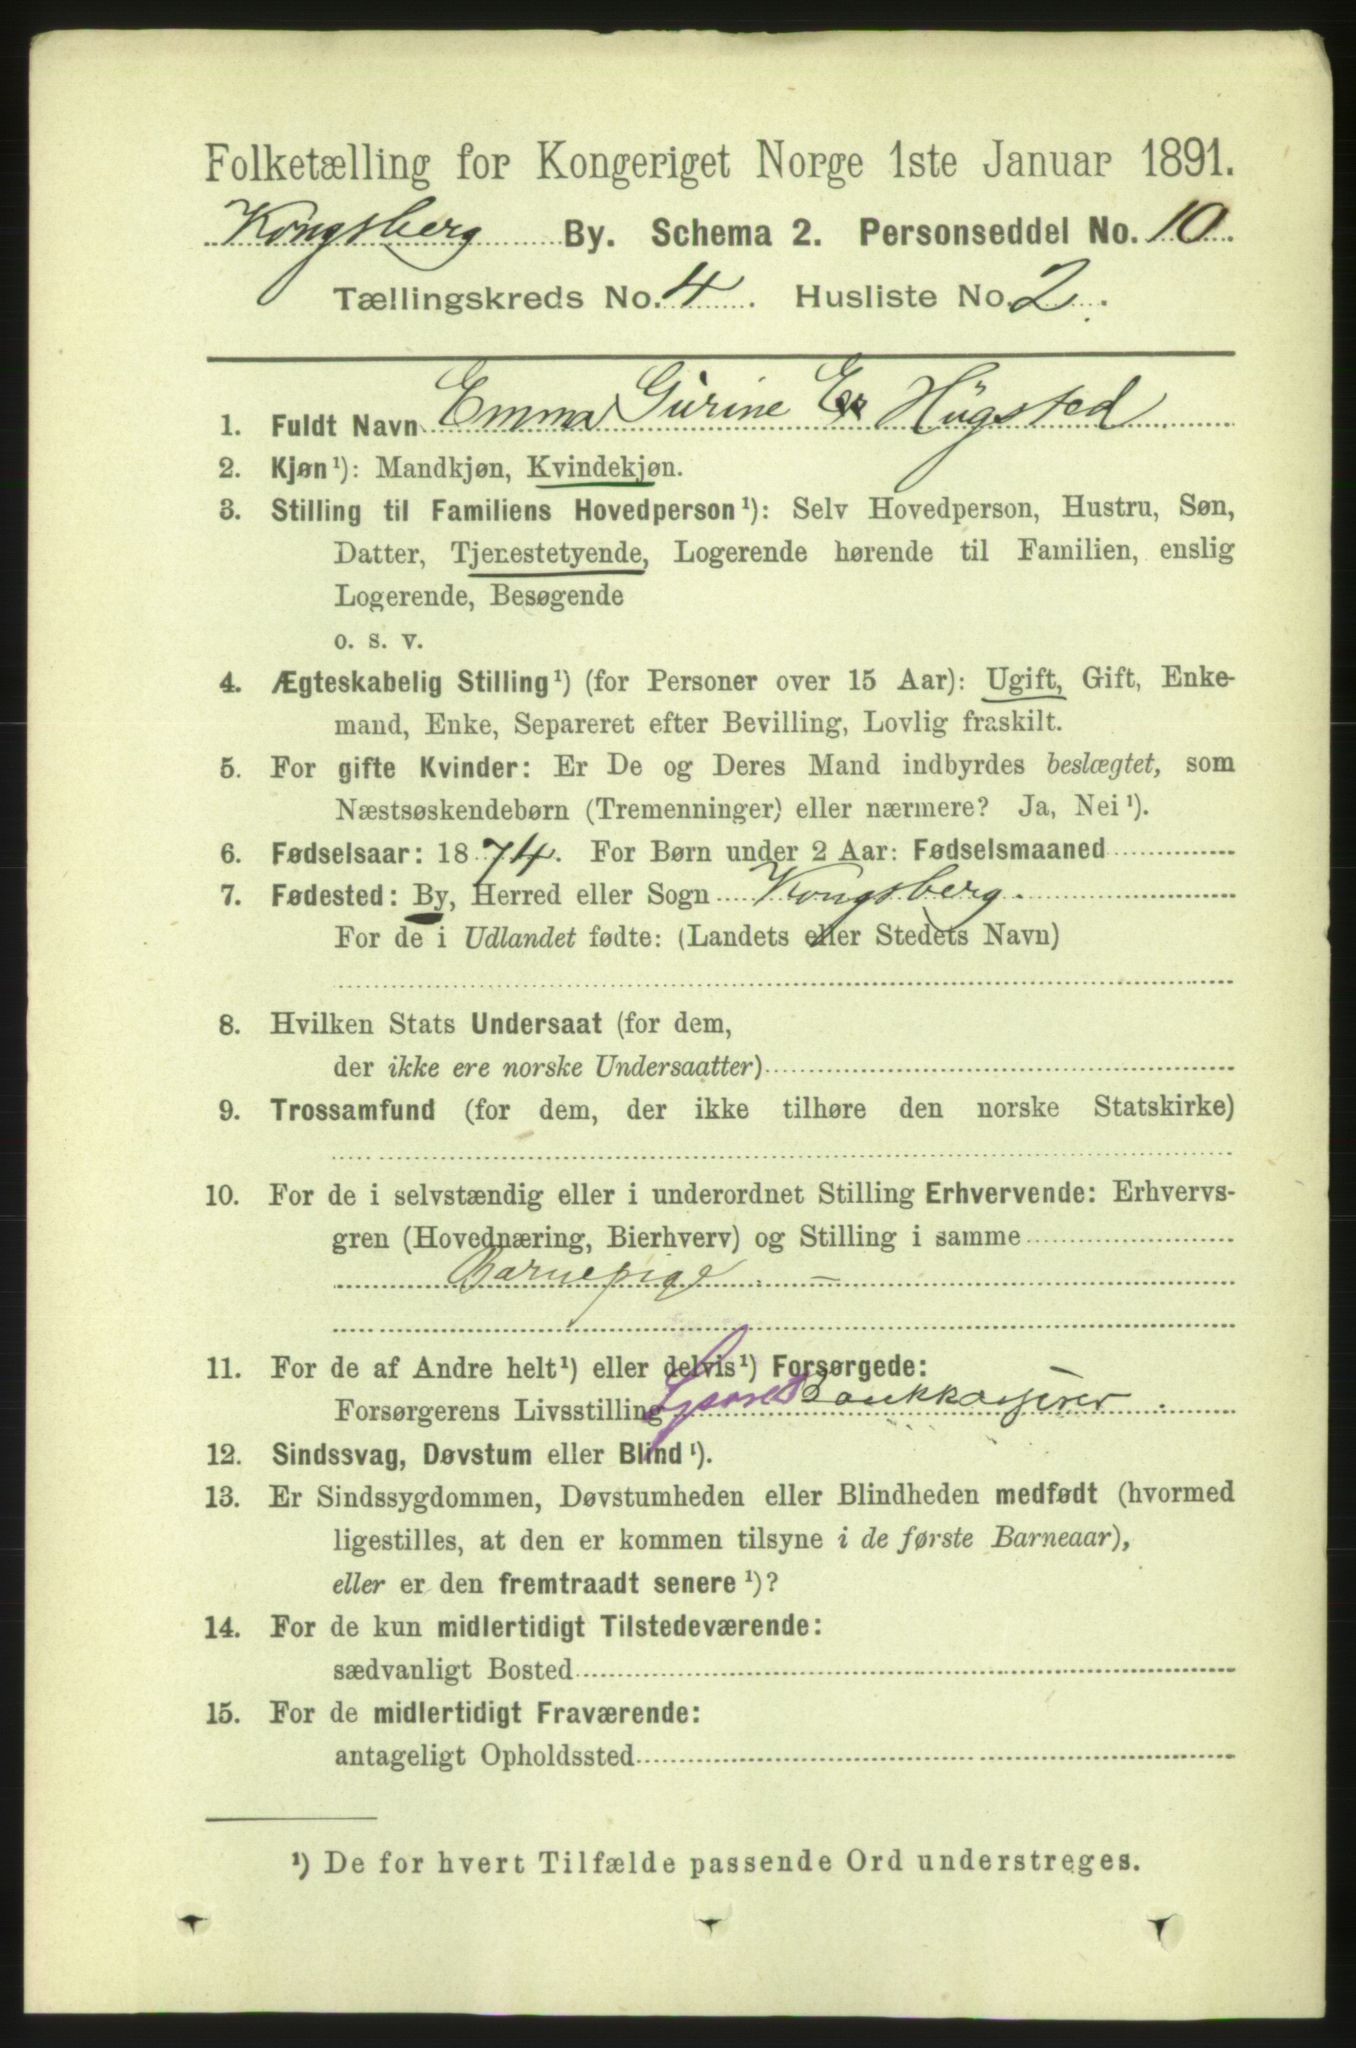 Folketælling for Kongeriget Norge 1ste Januar 1891.
Kongsberg By. Schema 2. Personseddel No. 10.
Tællingskreds No. 4. Husliste No. 2.
1. Fuldt Navn Emma Gurine Er Hügsted
2. Kjøn¹): Mandkjøn, Kvindekjøn.
3. Stilling til Familiens Hovedperson¹): Selv Hovedperson, Hustru, Søn,
Datter, Tjenestetyende, Logerende hørende til Familien, enslig
Logerende, Besøgende
o. s. v.
4. Ægteskabelig Stilling¹) (for Personer over 15 Aar): Ugift, Gift, Enke-
mand, Enke, Separeret efter Bevilling, Lovlig fraskilt.
5. For gifte Kvinder: Er De og Deres Mand indbyrdes beslægtet, som
Næstsøskendebørn (Tremenninger) eller nærmere? Ja, Nei¹).
6. Fødselsaar: 1874. For Børn under 2 Aar: Fødselsmaaned
7. Fødested: By, Herred eller Sogn Kongsberg.
For de i Udlandet fødte: (Landets eller Stedets Navn)
8. Hvilken Stats Undersaat (for dem,
der ikke ere norske Undersaatter)
9. Trossamfund (for dem, der ikke tilhøre den norske Statskirke)
10. For de i selvstændig eller i underordnet Stilling Erhvervende: Erhvervs-
gren (Hovednæring, Bierhverv) og Stilling i samme
Barnepige. —
11. For de af Andre helt¹) eller delvis¹) Forsørgede:
Forsørgerens Livsstilling Bankkasserer.
12. Sindssvag, Døvstum eller Blind¹).
13. Er Sindssygdommen, Døvstumheden eller Blindheden medfødt (hvormed
ligestilles, at den er kommen tilsyne i de første Barneaar),
eller er den fremtraadt senere¹)?
14. For de kun midlertidigt Tilstedeværende:
sædvanligt Bosted
15. For de midlertidigt Fraværende:
antageligt Opholdssted
¹) De for hvert Tilfælde passende Ord understreges.